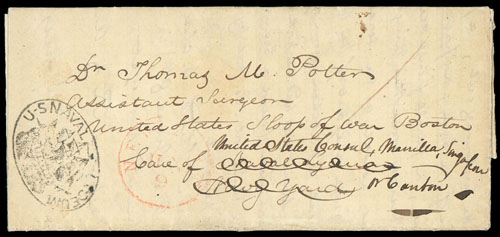 Dr Thomas M. Potter
Assistant Surgeon
United States Sloop of War Boston
United States Consul, Manilla, Singapore
Care of
Navy Yard or Canton
U.S. NAVAL LYCEUM